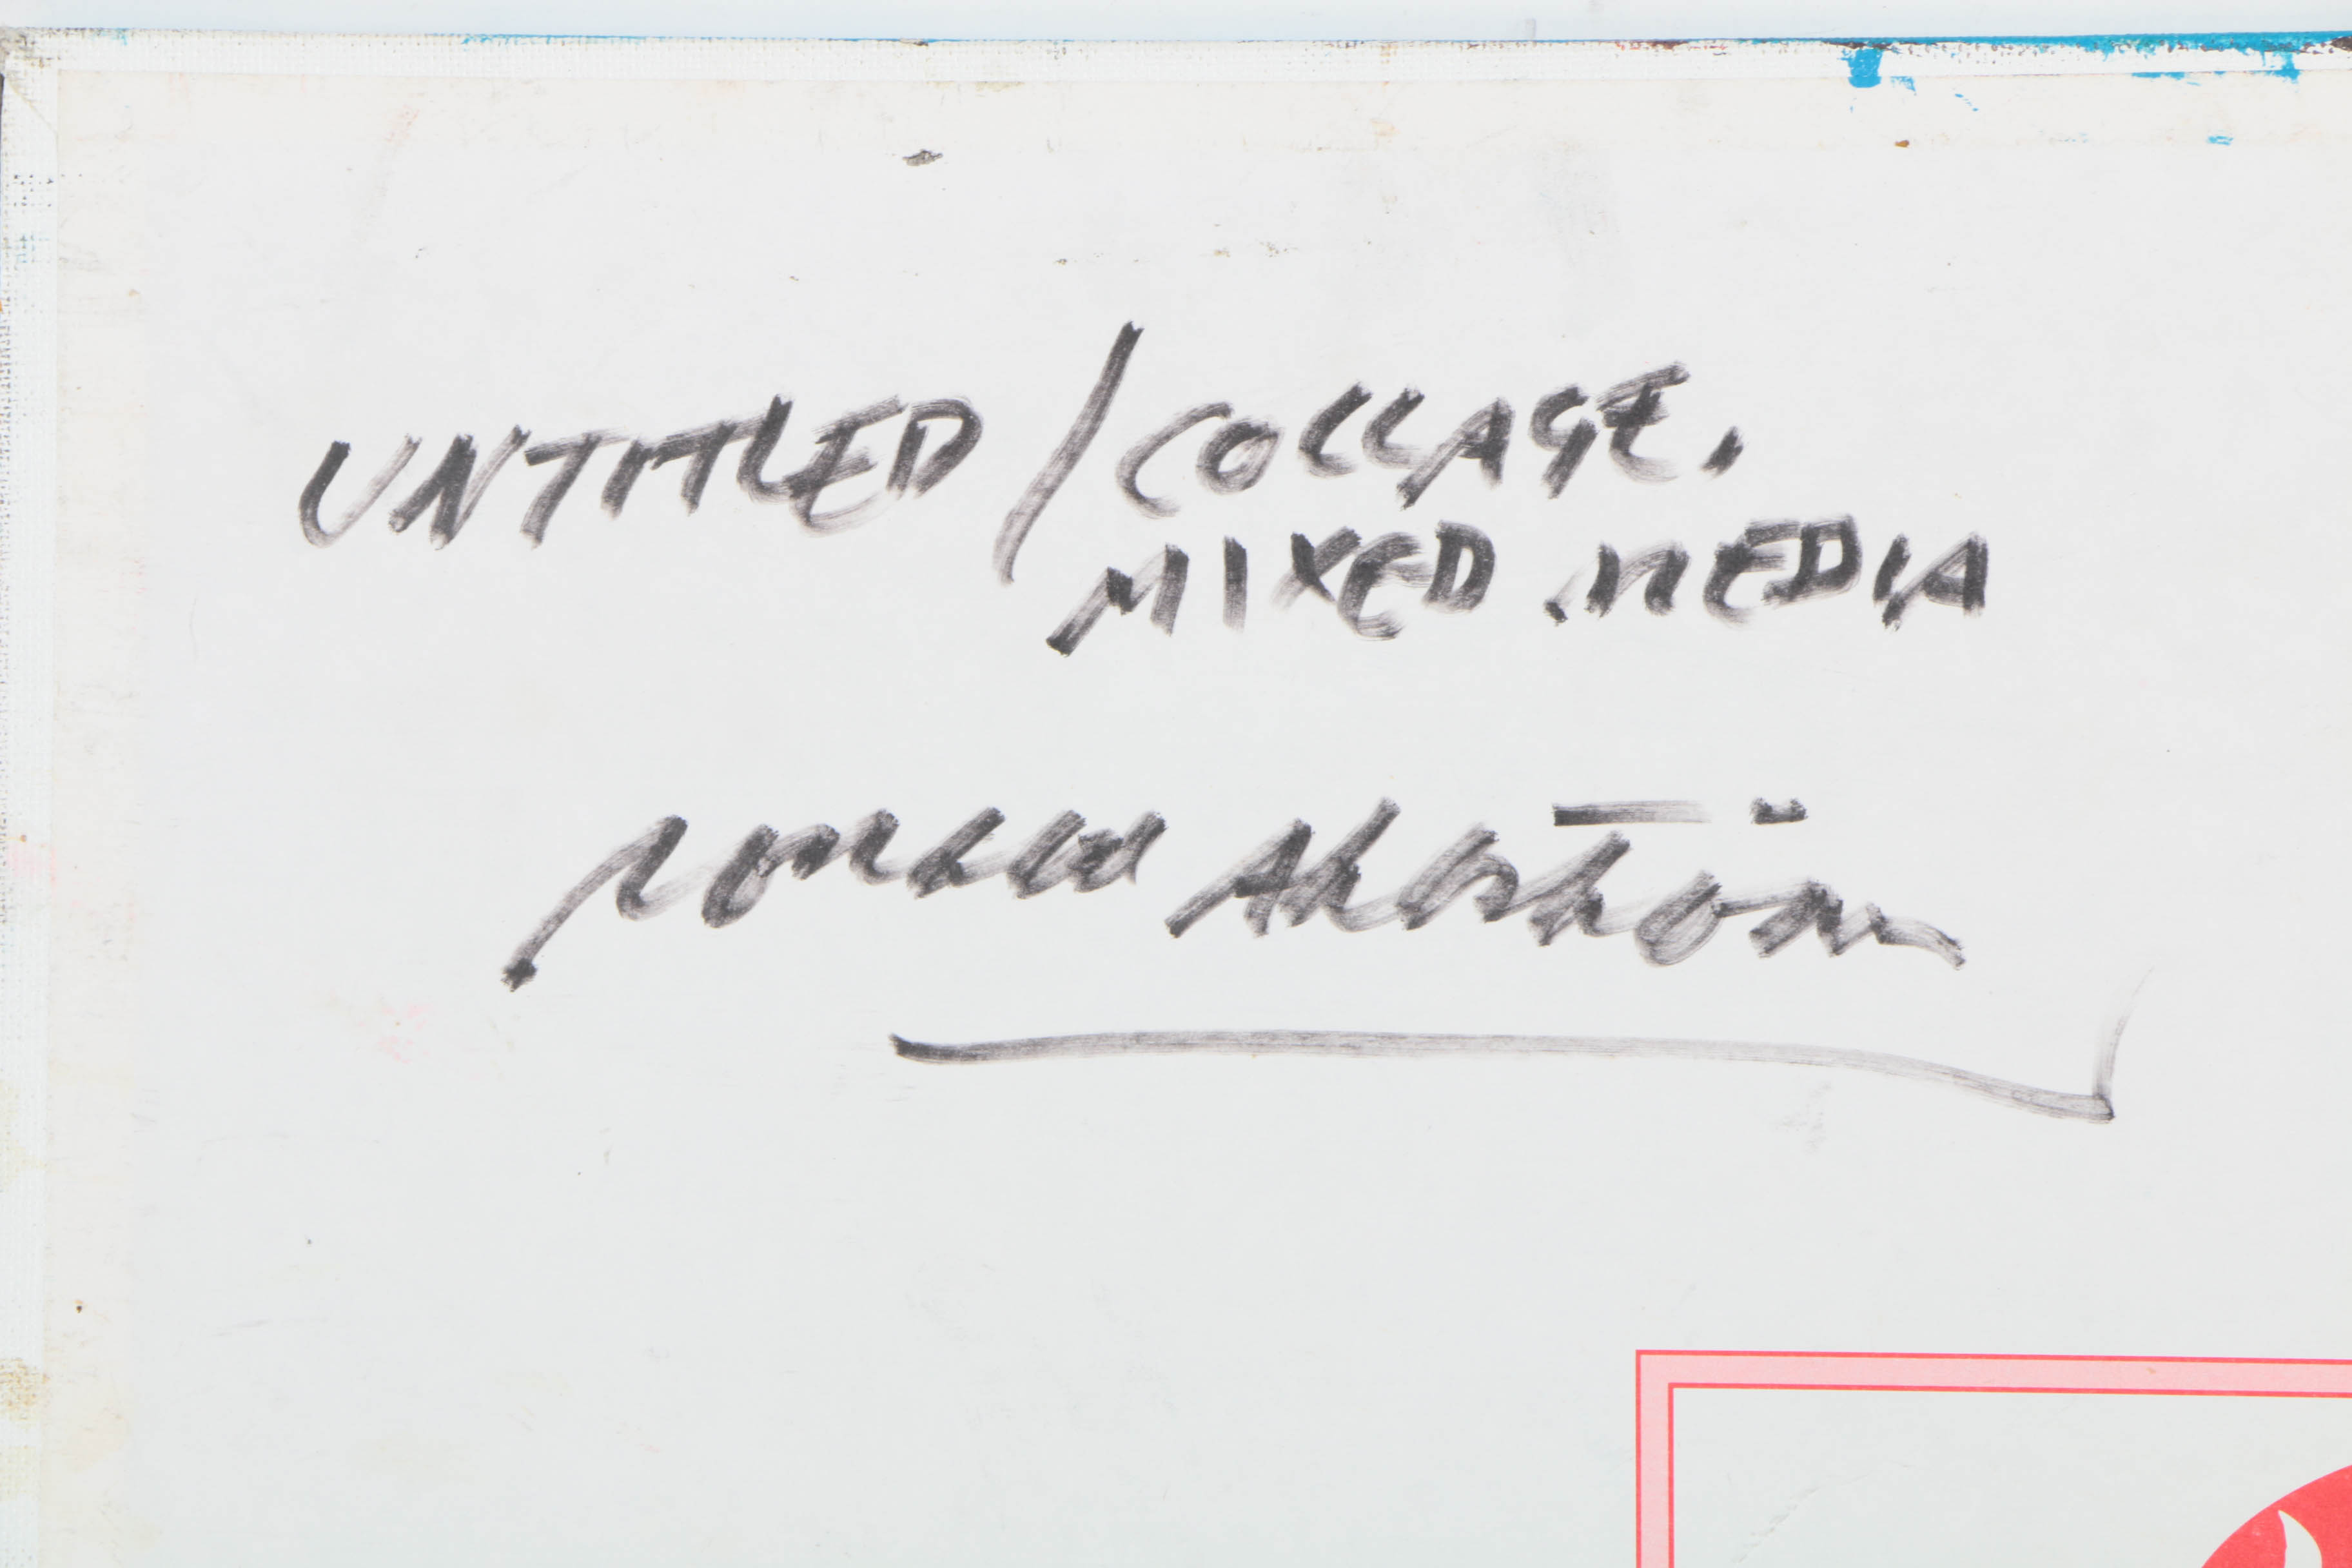 UNTITLED / COLLAGE,
MIXED MEDIA
Ronald Ahlström